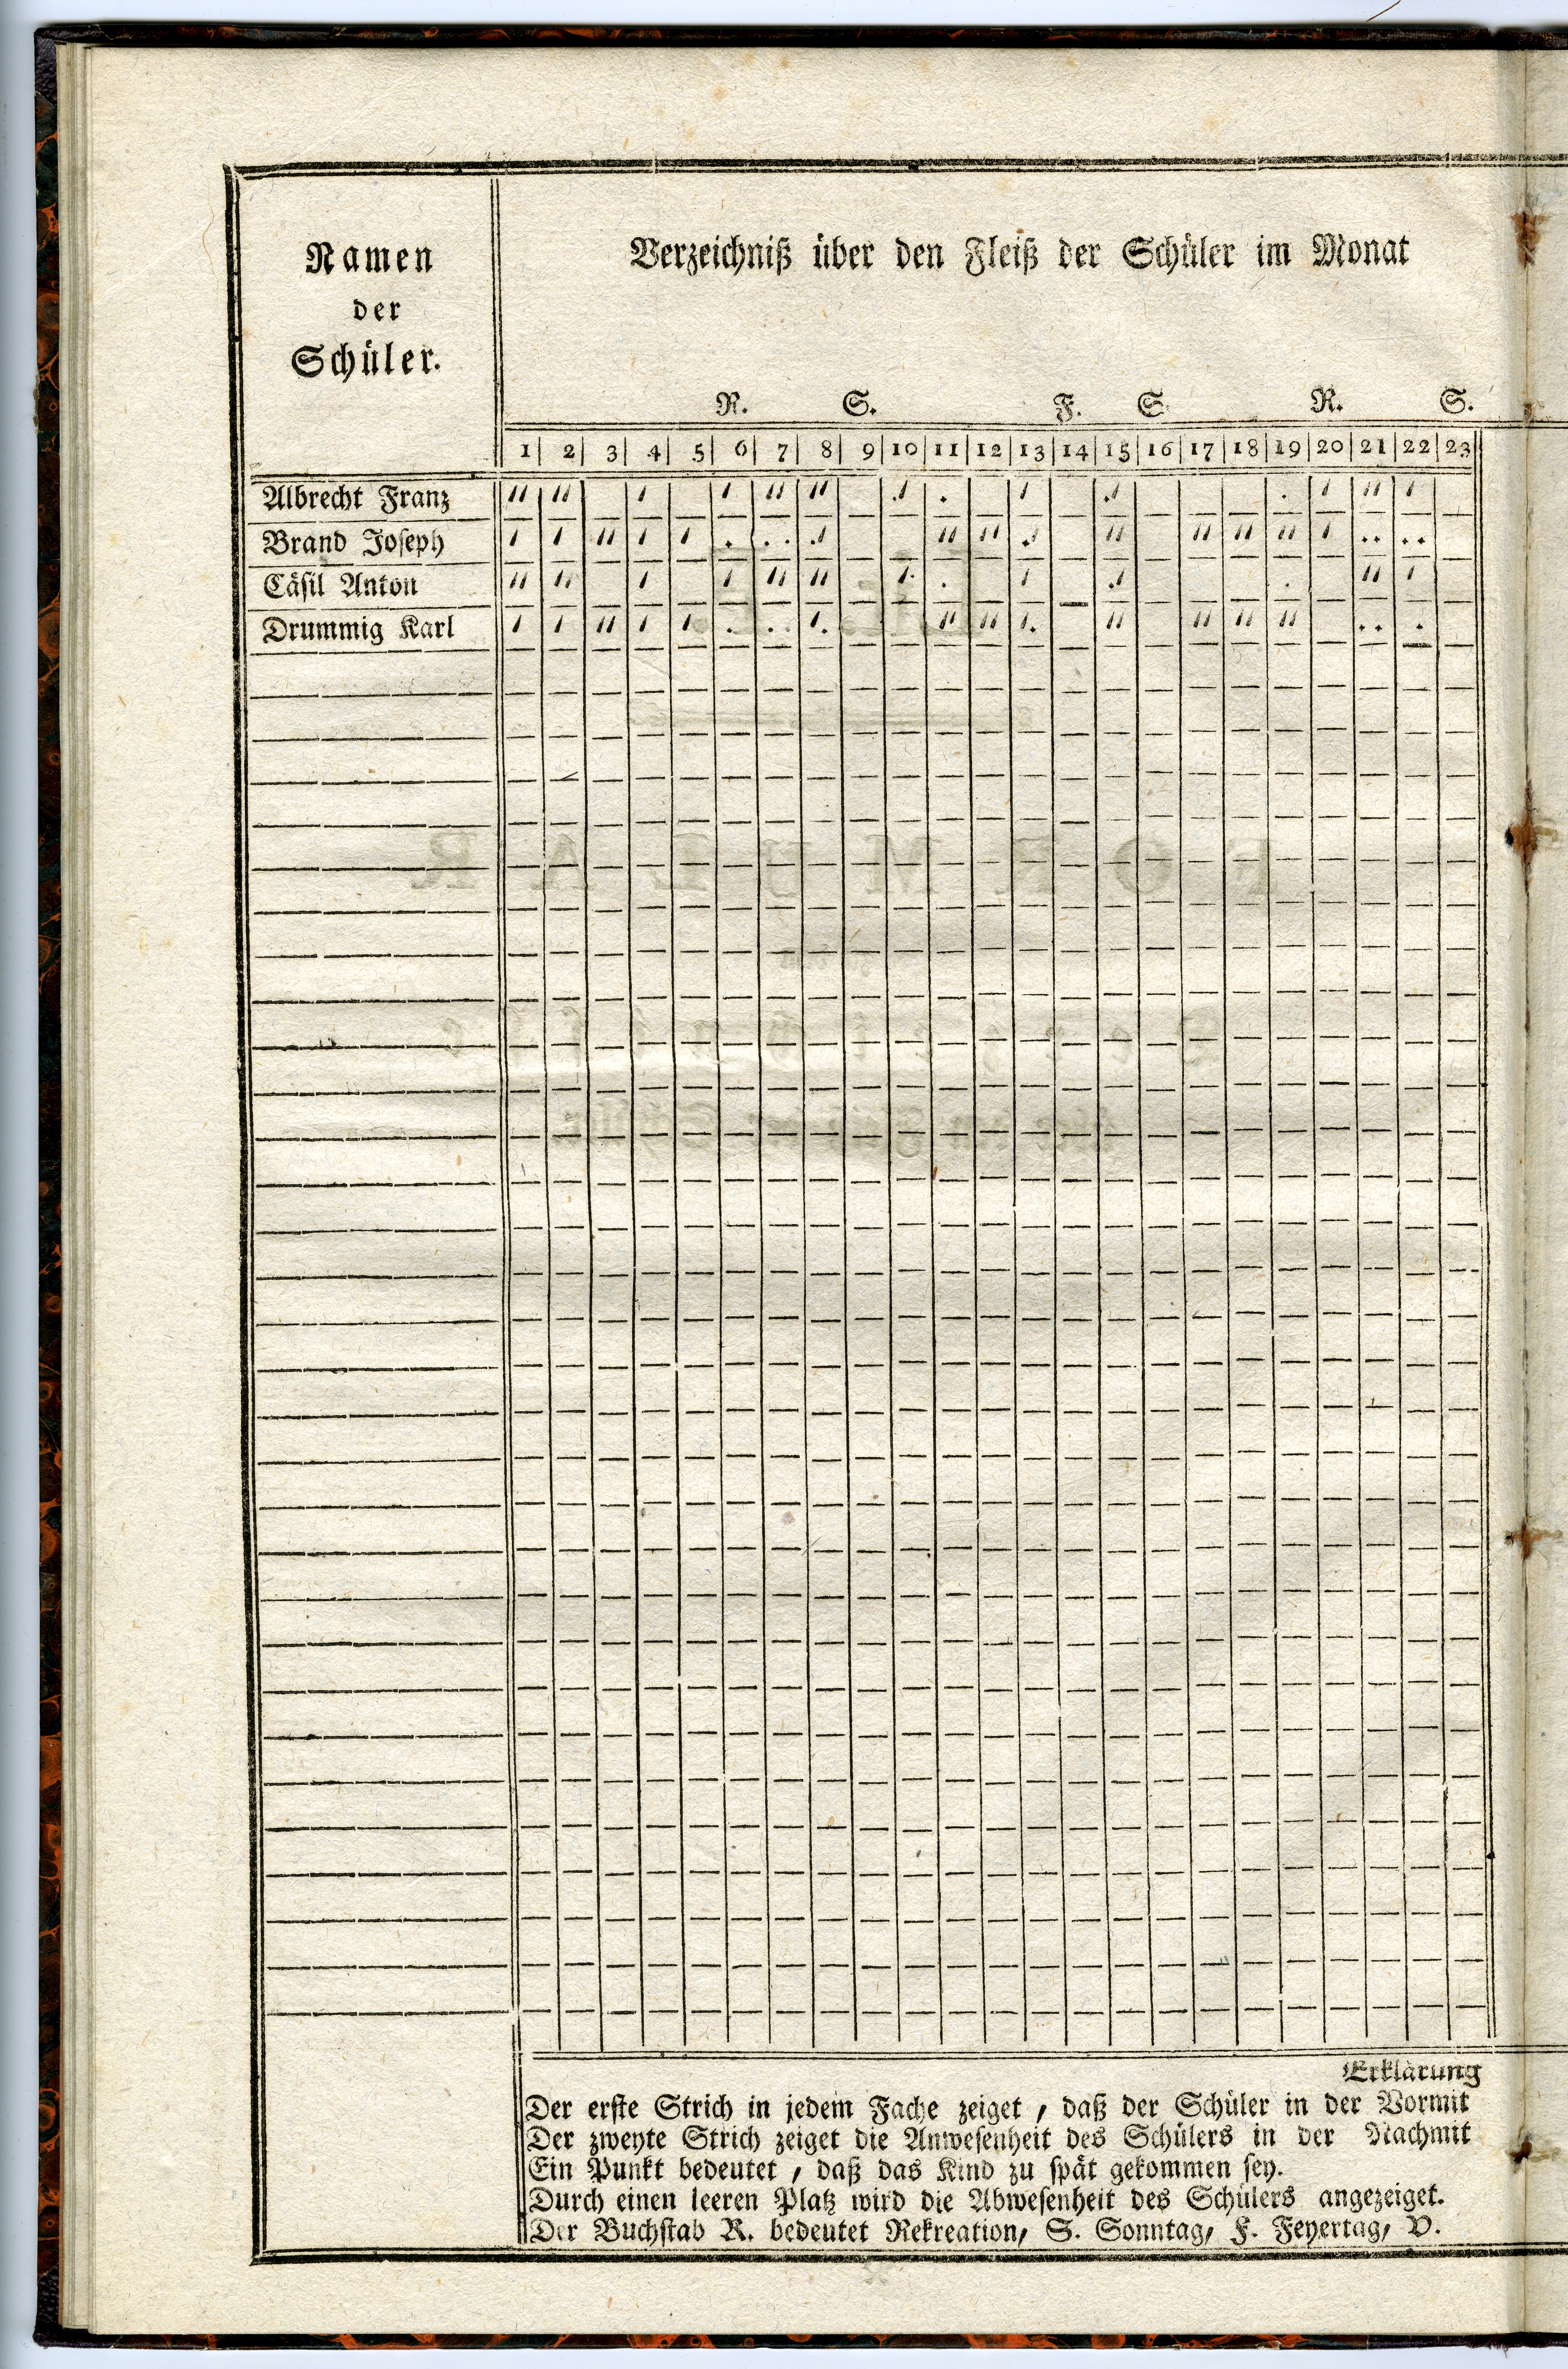 Namen
der
Schüler.
Verzeichniß über den Fleiß der Schüler im Monat
R. S. F. S R. S.
1 2 3 4 5 6 7 8 9 10 11 12 13 14 15 16 17 18 19 20 21 22 23
Albrecht Franz
Brand Joseph
Cäsil Anton
Drummig Karl
Erklärung
Der erste Strich in jedem Fache zeiget, daß der Schüler in der Vormit
Der zweyte Strich zeiget die Anwesenheit des Schülers in der Nachmit
Ein Punkt bedeutet, daß das Kind zu spät gekommen sey.
Durch einen leeren Platz wird die Abwesenheit des Schülers angezeiget.
Der Buchstab R. bedeutet Rekreation, S. Sonntag, F. Feyertag, V.